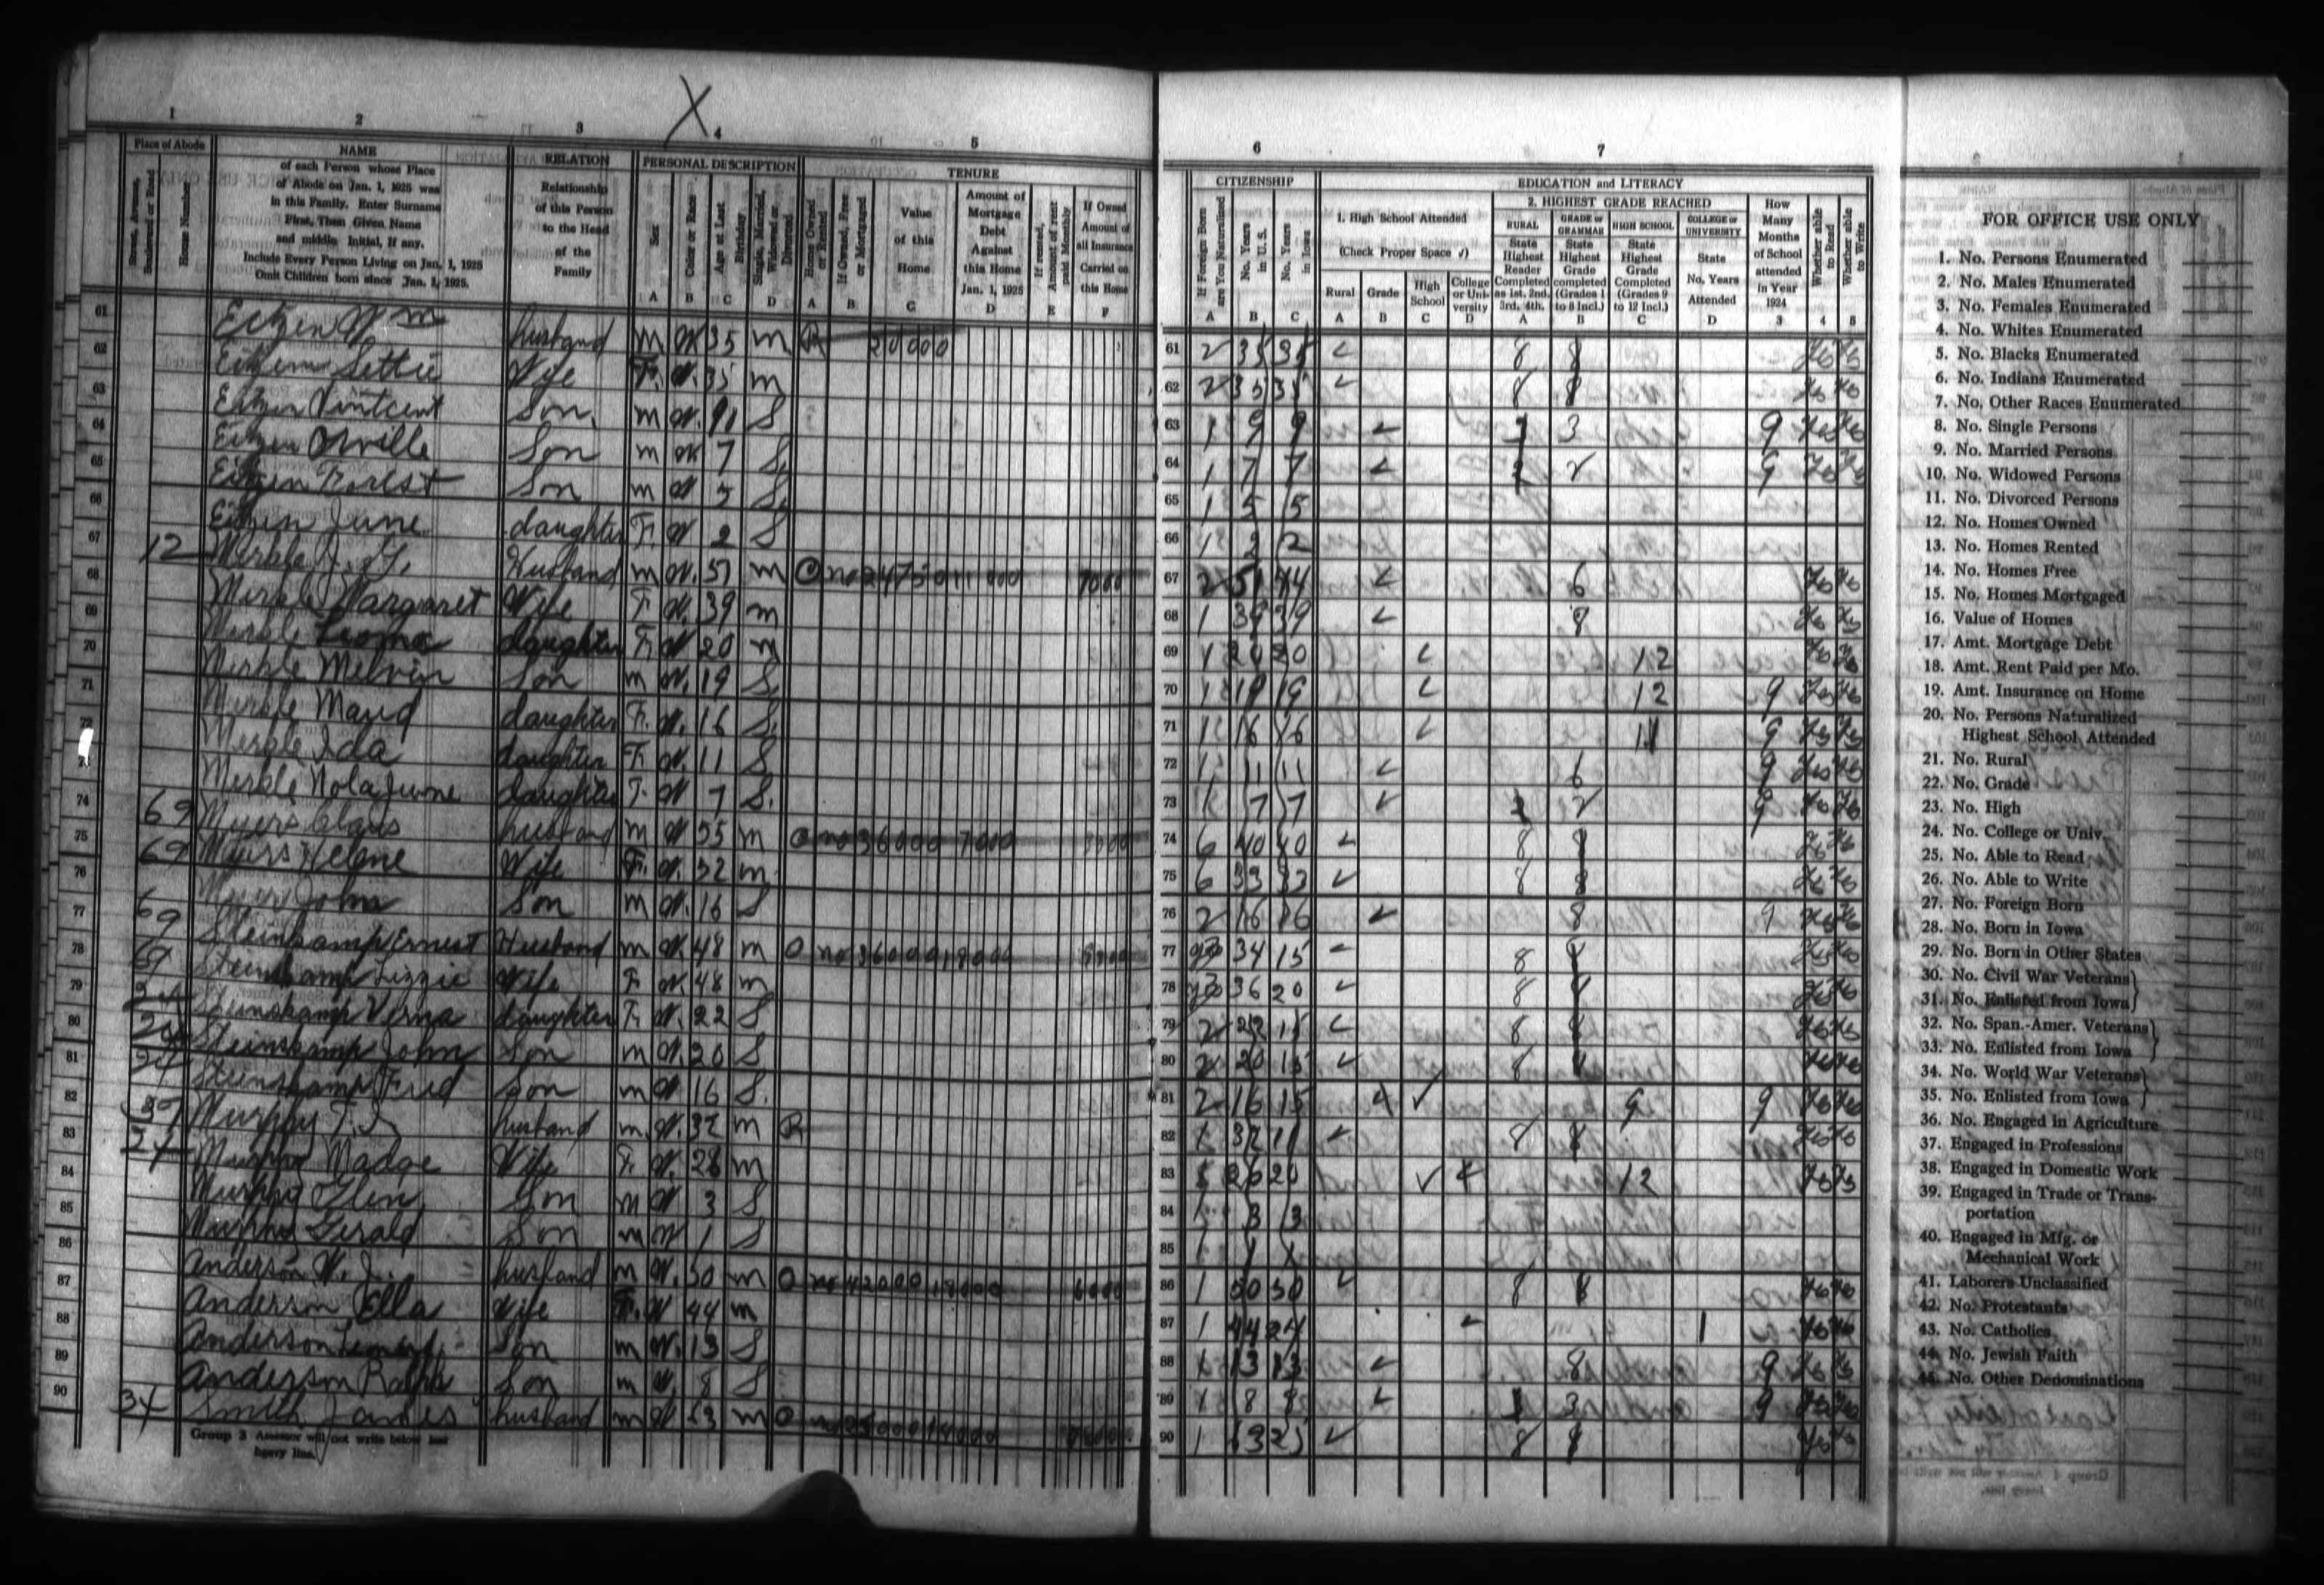 X
1 2 3 4 5 6 7
Place of Abode
Street, Avenue, Boulevard or Road
House Number
NAME
of each Person whose Place
of Abode on Jan. 1, 1925 was
in this Family. Enter Surname
First, Then Given Name
and middle Initial, if any.
Include Every Person Living on Jan. 1, 1925
Omit Children born since Jan. 1, 1925.
RELATION
Relationship
of this Person
to the Head
of the
Family
PERSONAL DESCRIPTION
Sex
Color or Race
Age at Last Birthday
Single, Married, Widowed or Divorced
A B C D
TENURE
Home Owned or Rented
If Owned, Free or Mortgaged
Value of this Home
Amount of Mortgage Debt Against this Home Jan. 1, 1925
If rented, Amount of rent paid Monthly
If Owned Amount of all Insurance Carried on this Home
A B C D E F
CITIZENSHIP
If Foreign Born are You Naturalized
No. Years in U.S.
No. Years in Iowa
A B C
EDUCATION and LITERACY
1. High School Attended
(Check Proper Space ✓)
Rural Grade High School College or University
A B C D
2. HIGHEST GRADE REACHED
RURAL
State Highest Reader Completed as 1st, 2nd, 3rd, 4th.
GRADE or GRAMMAR
State Highest Grade completed (Grades 1 to 8 Incl.)
HIGH SCHOOL
State Highest Grade Completed (Grades 9 to 12 Incl.)
COLLEGE or UNIVERSITY
State No. Years Attended
A B C D
How Many Months of School attended in Year 1924
3
Whether able to Read
4
Whether able to Write
5
61 Eitzen Wm husband m W 35 m R 20000 61 2 35 35 8 8 Yes Yes
62 Eitzen Wife F. W. 35 m 62 2 35 35 8 8 Yes Yes
63 Eitzen Son m W. S 63 1 9 9 3 9 Yes Yes
64 Eitzen Orville Son m W 7 S. 64 1 7 7 2 9 Yes Yes
65 Eitzen Forest Son m W 5 S. 65 1 5 5
66 Eitzen June daughter F. W 2 S 66 1 2 2
67 12 Merkle Husband m W. 51 m O no 11000 7000 67 2 51 44 6 Yes Yes
68 Merkle Margaret Wife F. W. 39 m 68 1 39 39 8 Yes Yes
69 Merkle Leona daughter F. W 20 m 69 1 20 20 12 Yes Yes
70 Merkle Melvin Son m W. 19 S. 70 1 19 19 12 9 Yes Yes
71 Merkle Maud daughter F. W. 16 S. 71 1 16 16 11 9 Yes Yes
72 Merkle Ida daughter F. W. 11 S. 72 1 11 11 6 9 Yes Yes
73 Merkle Nola June daughter F. W 7 S. 73 1 7 7 2 9 Yes Yes
74 69 Myers Claus husband m W 55 m O no 36000 7000 74 6 40 40 8 8 Yes Yes
75 69 Myers Helene Wife F. W. 52 m 75 6 33 33 8 8 Yes Yes
76 Myers John Son m W. 16 S 76 2 16 16 8 9 Yes Yes
77 69 Steinkamp Ernest Husband m W. 48 m O no 36000 18000 77 34 15 8 8 Yes Yes
78 69 Steinkamp Lizzie Wife F W 48 m 78 36 20 8 8 Yes Yes
79 24 Steinkamp Verna daughter F. W. 22 S 79 2 22 15 8 8 Yes Yes
80 24 Steinkamp John Son m W. 20 S 80 2 20 15 8 8 Yes Yes
81 24 Steinkamp Fred Son m W 16 S. 81 2 16 15 ✓ 9 9 Yes Yes
82 Murphy husband m. W. 32 m R 82 1 32 11 8 8 Yes Yes
83 Murphy Madge Wife F. W. 26 m 83 1 26 20 ✓ 12 Yes Yes
84 Murphy Glen Son m W 3 S 84 1 3 3
85 Murphy Gerald Son m W 1 S 85 1 1 1
86 Anderson W. J. husband m W. 50 m O no 42000 18000 6000 86 1 50 50 8 8 Yes Yes
87 Anderson Ella Wife F. W 44 m 87 1 44 24 1 Yes Yes
88 Anderson Son m W. 13 S 88 1 13 13 8 9 Yes Yes
89 Anderson Ralph Son m W. 8 S 89 1 8 8 3 9 Yes Yes
90 34 Smith James husband m W m O no 14000 90 1 8 8 Yes Yes
Group 3 Assessor will not write below last
heavy line.
FOR OFFICE USE ONLY
1. No. Persons Enumerated
2. No. Males Enumerated
3. No. Females Enumerated
4. No. Whites Enumerated
5. No. Blacks Enumerated
6. No. Indians Enumerated
7. No. Other Races Enumerated
8. No. Single Persons
9. No. Married Persons
10. No. Widowed Persons
11. No. Divorced Persons
12. No. Homes Owned
13. No. Homes Rented
14. No. Homes Free
15. No. Homes Mortgaged
16. Value of Homes
17. Amt. Mortgage Debt
18. Amt. Rent Paid per Mo.
19. Amt. Insurance on Home
20. No. Persons Naturalized
Highest School Attended
21. No. Rural
22. No. Grade
23. No. High
24. No. College or Univ.
25. No. Able to Read
26. No. Able to Write
27. No. Foreign Born
28. No. Born in Iowa
29. No. Born in Other States
30. No. Civil War Veterans
31. No. Enlisted from Iowa
32. No. Span.-Amer. Veterans
33. No. Enlisted from Iowa
34. No. World War Veterans
35. No. Enlisted from Iowa
36. No. Engaged in Agriculture
37. Engaged in Professions
38. Engaged in Domestic Work
39. Engaged in Trade or Trans-
portation
40. Engaged in Mfg. or
Mechanical Work
41. Laborers Unclassified
42. No. Protestants
43. No. Catholics
44. No. Jewish Faith
45. No. Other Denominations